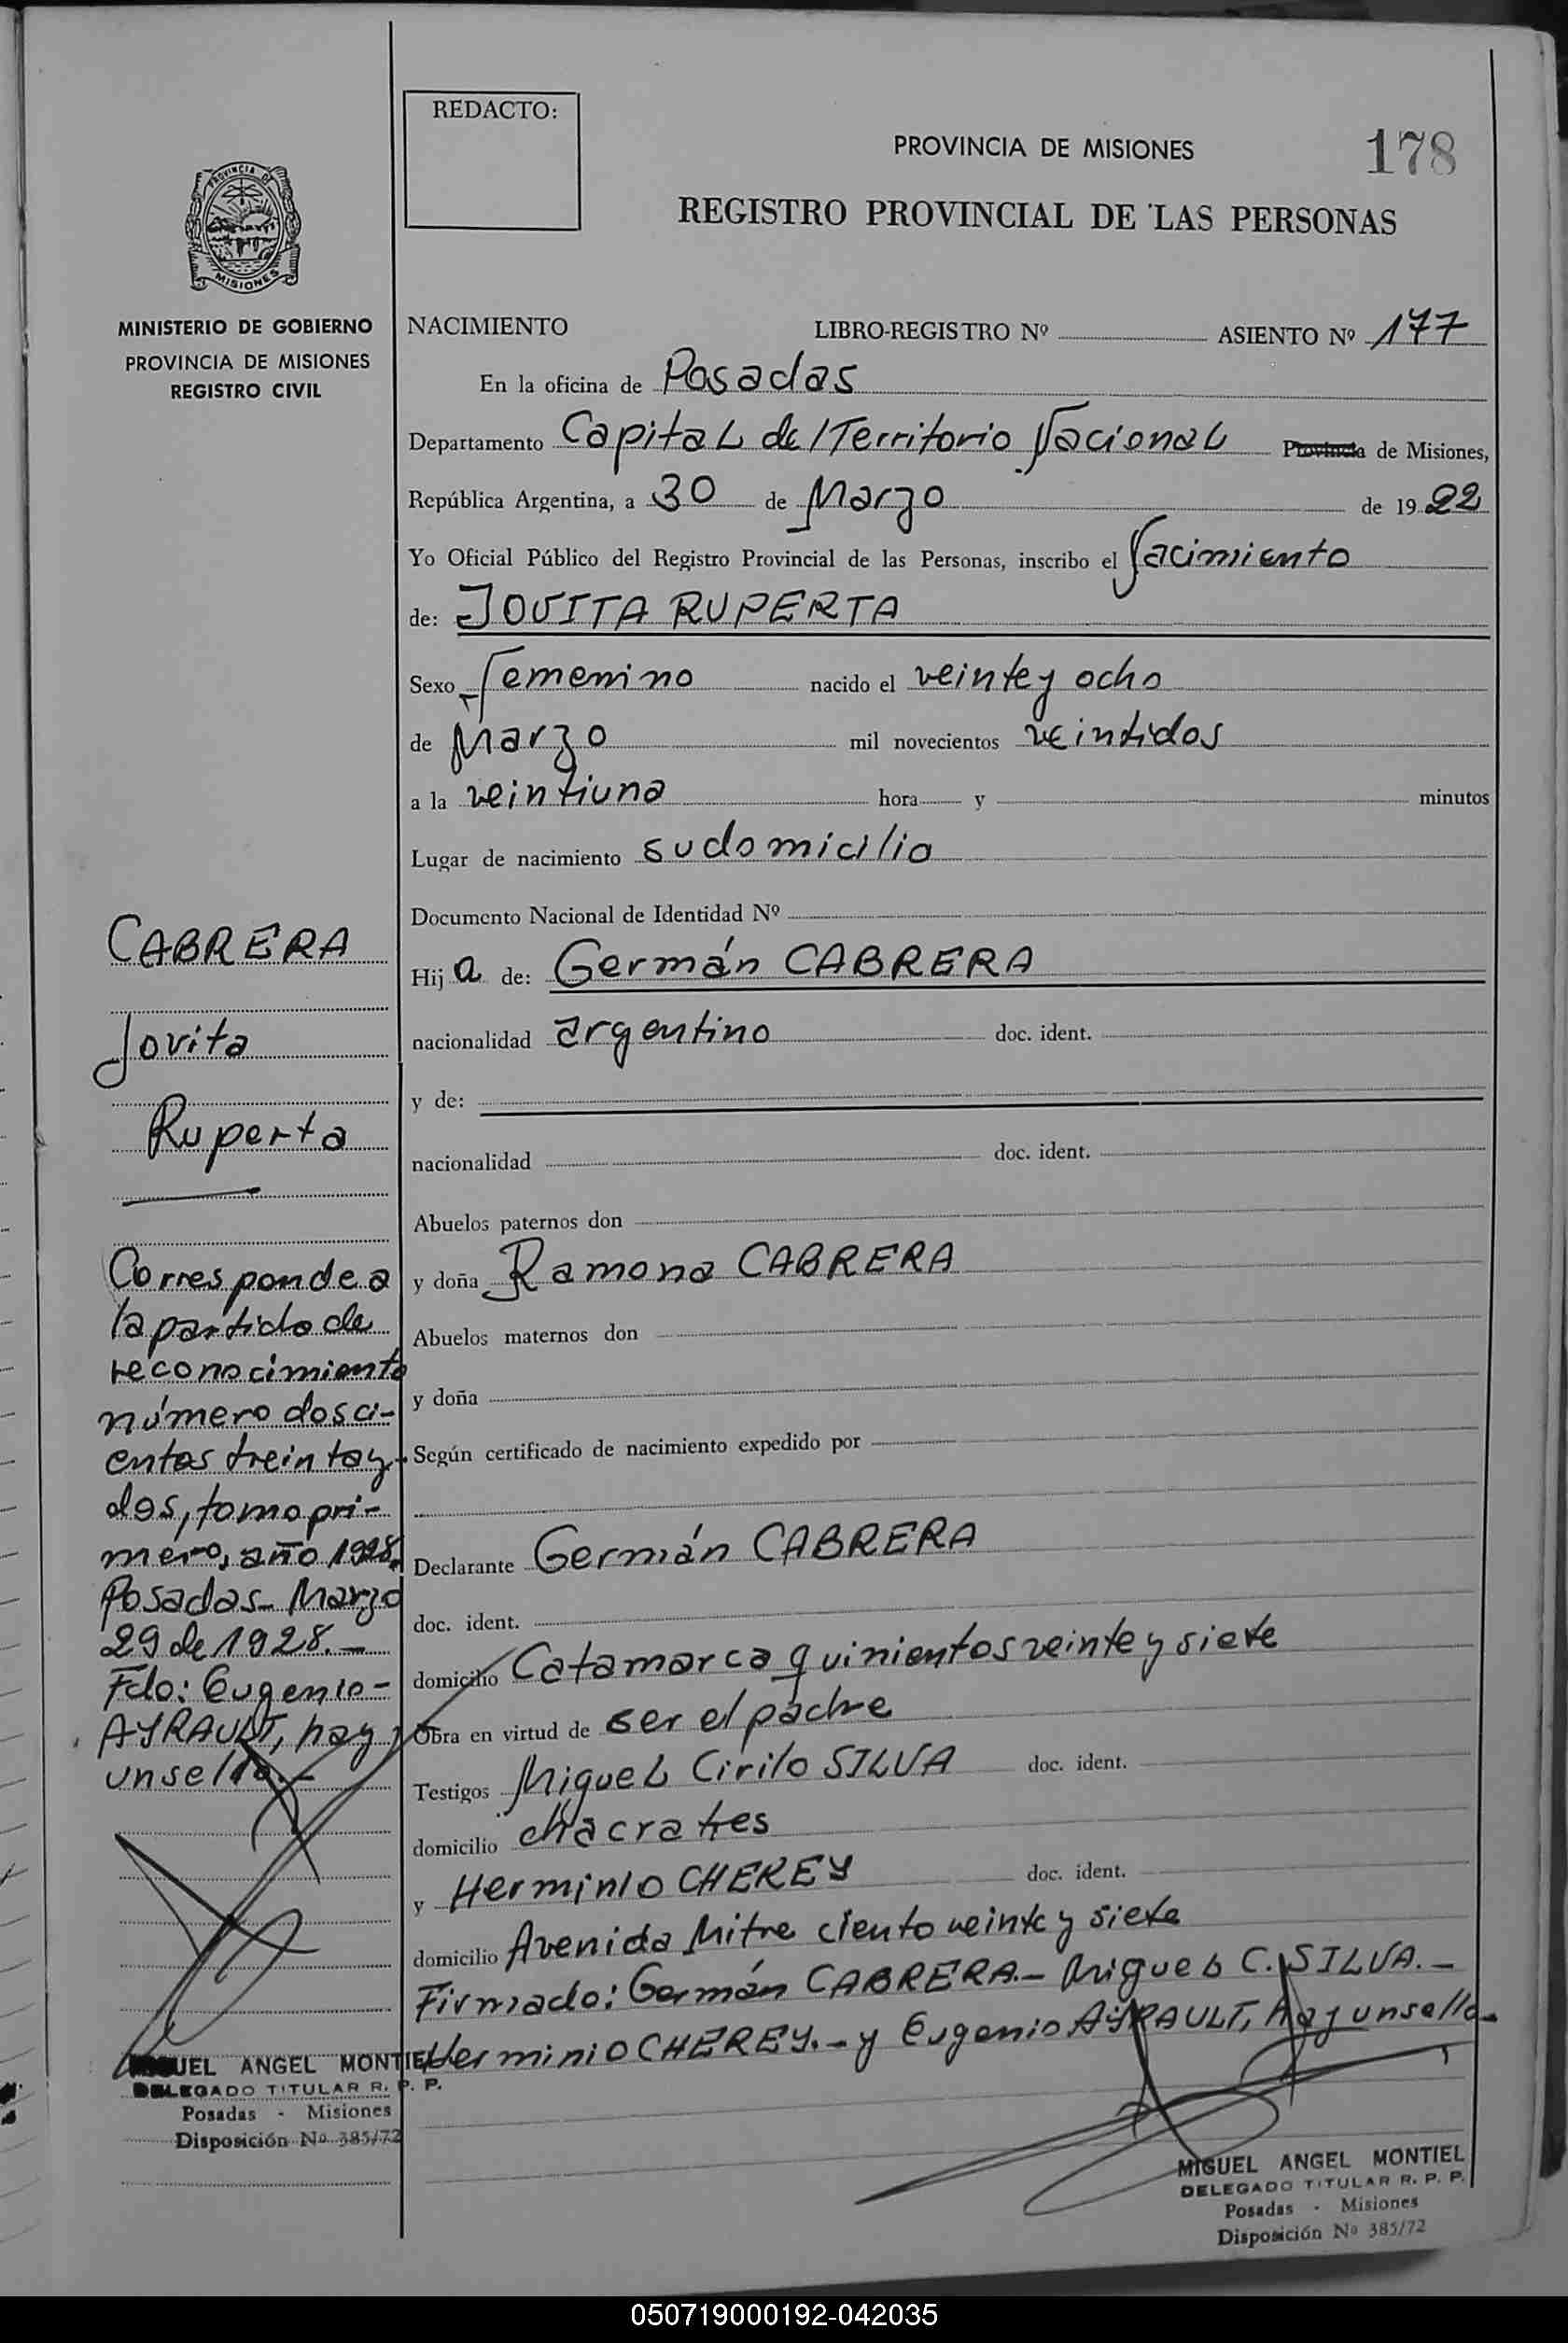 REDACTO:
PROVINCIA DE MISIONES
178
REGISTRO PROVINCIAL DE LAS PERSONAS
PROVINCIA DE
MISIONES
MINISTERIO DE GOBIERNO
PROVINCIA DE MISIONES
REGISTRO CIVIL
NACIMIENTO LIBRO-REGISTRO Nº ASIENTO Nº 177
En la oficina de Posadas
Departamento Capital del Territorio Nacional Provincia de Misiones,
República Argentina, a 30 de Marzo de 1922
Yo Oficial Público del Registro Provincial de las Personas, inscribo el Nacimiento
de: JOVITA RUPERTA
Sexo Femenino nacido el veinte y ocho
de Marzo mil novecientos veintidos
a la veintiuna hora y minutos
Lugar de nacimiento su domicilio
Documento Nacional de Identidad Nº
Hija de: Germán CABRERA
nacionalidad argentino doc. ident.
y de:
nacionalidad doc. ident.
Abuelos paternos don
y doña Ramona CABRERA
Abuelos maternos don
y doña
Según certificado de nacimiento expedido por
Declarante Germán CABRERA
doc. ident.
domicilio Catamarca quinientos veinte y siete
Obra en virtud de ser el padre
Testigos Miguel Cirilo SILVA doc. ident.
domicilio
y Herminio CHEREY doc. ident.
domicilio Avenida Mitre ciento veinte y siete
Firmado: Germán CABRERA.- Miguel C. SILVA.-
Herminio CHEREY.- y Eugenio AYRAULT, hay un sello.-
MIGUEL ANGEL MONTIEL
DELEGADO TITULAR R. P. P.
Posadas - Misiones
Disposición Nº 385/72
CABRERA
Jovita
Ruperta
Corresponde a
la partida de
reconocimiento
número dosci-
entos treinta y
dos, tomo pri-
mero, año 1928.
Posadas- Marzo
29 de 1928.-
Fdo: Eugenio-
AYRAULT, hay
un sello.-
MIGUEL ANGEL MONTIEL
DELEGADO TITULAR R. P. P.
Posadas - Misiones
Disposición Nº 385/72
050719000192-042035